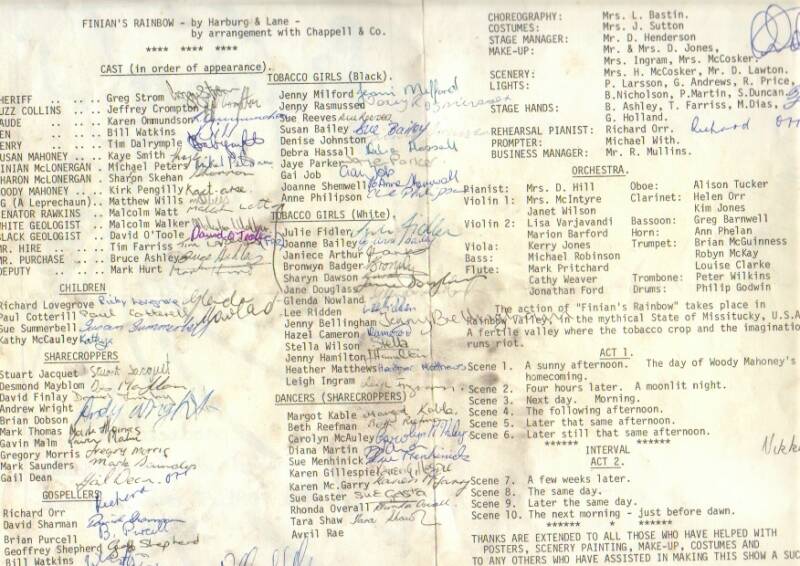 FINIAN'S RAINBOW - by Harburg & Lane -
by arrangement with Chappell & Co.
**** **** ****
CAST (in order of appearance).
HERIFF .. .. .. Greg Strom
UZZ COLLINS .. .. Jeffrey Crompton
AUDE .. .. .. Karen Ommundson
EN .. .. .. Bill Watkins
ENRY .. .. .. Tim Dalrymple
USAN MAHONEY .. .. Kaye Smith
INIAN McLONERGAN .. Michael Peters
HARON McLONERGAN .. Sharon Skehan
OODY MAHONEY .. .. Kirk Pengilly
G (A Leprechaun) .. Matthew Wills
ENATOR RAWKINS .. Malcolm Watt
WHITE GEOLOGIST .. Malcolm Walker
BLACK GEOLOGIST .. David O'Toole David O'Toole
MR. HIRE .. .. Tim Farriss
MR. PURCHASE .. .. Bruce Ashley Bruce Ashley
DEPUTY .. .. Mark Hurt
CHILDREN
Richard Lovegrove Ricky Lovegrove
Paul Cotterill Paul Cotterill
Sue Summerbell Susan Summerbell
Kathy McCauley
Glenda Nowland
SHARECROPPERS
Stuart Jacquet Stuart Jacquet
Desmond Mayblom
David Finlay
Andrew Wright Andy Wright
Brian Dobson
Mark Thomas
Gavin Malm Gavin Malm
Gregory Morris Gregory Morris
Mark Saunders Mark Saunders
Gail Dean Gail Dean
GOSPELLERS
Richard Orr Richard
David Sharman David Sharman
Brian Purcell B. Purcell
Geoffrey Shepherd Geoff Shepherd
Bill Watkins
TOBACCO GIRLS (Black).
Jenny Milford Jenni Milford
Jenny Rasmussed
Sue Reeves Sue Reeves
Susan Bailey Sue Bailey
Denise Johnston
Debra Hassall Debra Hassall
Jaye Parker Jaye Parker
Gai Job Gai Job
Joanne Shemwell Jo Anne Shemwell
Anne Philipson
TOBACCO GIRLS (White)
Julie Fidler Julie Fidler
Joanne Bailey
Janiece Arthur
Bronwyn Badger Bronwyn
Sharyn Dawson
Jane Douglass
Glenda Nowland
Lee Ridden Lee Ridden
Jenny Bellingham Jenny Bellingham
Hazel Cameron
Stella Wilson Stella
Jenny Hamilton
Heather Matthews Heather Matthews
Leigh Ingram
DANCERS (SHARECROPPERS)
Margot Kable Margot Kable
Beth Reefman Beth Reefman
Carolyn McAuley
Diana Martin
Sue Menhinick Sue Menhinick
Karen Gillespie
Karen Mc.Garry
Sue Gaster
Rhonda Overall
Tara Shaw Tara Shaw
Avril Rae
CHOREOGRAPHY: Mrs. L. Bastin.
COSTUMES: Mrs. J. Sutton
STAGE MANAGER: Mr. D. Henderson
MAKE-UP: Mr. & Mrs. D. Jones,
Mrs. Ingram, Mrs. McCosker.
SCENERY: Mrs. H. McCosker, Mr. D. Lawton.
LIGHTS: P. Larsson, G. Andrews, R. Price,
B.Nicholson, P.Martin, S.Duncan.
STAGE HANDS: B. Ashley, T. Farriss, M.Dias,
G. Holland.
REHEARSAL PIANIST: Richard Orr. Richard Orr
PROMPTER: Michael With.
BUSINESS MANAGER: Mr. R. Mullins.
ORCHESTRA.
Pianist: Mrs. D. Hill Oboe: Alison Tucker
Violin 1: Mrs. McIntyre Clarinet: Helen Orr
Janet Wilson Kim Jones
Violin 2: Lisa Varjavandi Bassoon: Greg Barnwell
Marion Barford Horn: Ann Phelan
Viola: Kerry Jones Trumpet: Brian McGuinness
Bass: Michael Robinson Robyn McKay
Flute: Mark Pritchard Louise Clarke
Cathy Weaver Trombone: Peter Wilkins
Jonathan Ford Drums: Philip Godwin
The action of "Finian's Rainbow" takes place in
Rainbow Valley, in the mythical State of Missitucky, U.S.A
A fertile valley where the tobacco crop and the imagination
runs riot.
ACT 1.
Scene 1. A sunny afternoon. The day of Woody Mahoney's
homecoming.
Scene 2. Four hours later. A moonlit night.
Scene 3. Next day. Morning.
Scene 4. The following afternoon.
Scene 5. Later that same afternoon.
Scene 6. Later still that same afternoon.
****** ******
INTERVAL
ACT 2.
Nikki
Scene 7. A few weeks later.
Scene 8. The same day.
Scene 9. Later the same day.
Scene 10. The next morning - just before dawn.
****** * ******
THANKS ARE EXTENDED TO ALL THOSE WHO HAVE HELPED WITH
POSTERS, SCENERY PAINTING, MAKE-UP, COSTUMES AND
TO ANY OTHERS WHO HAVE ASSISTED IN MAKING THIS SHOW A SUC